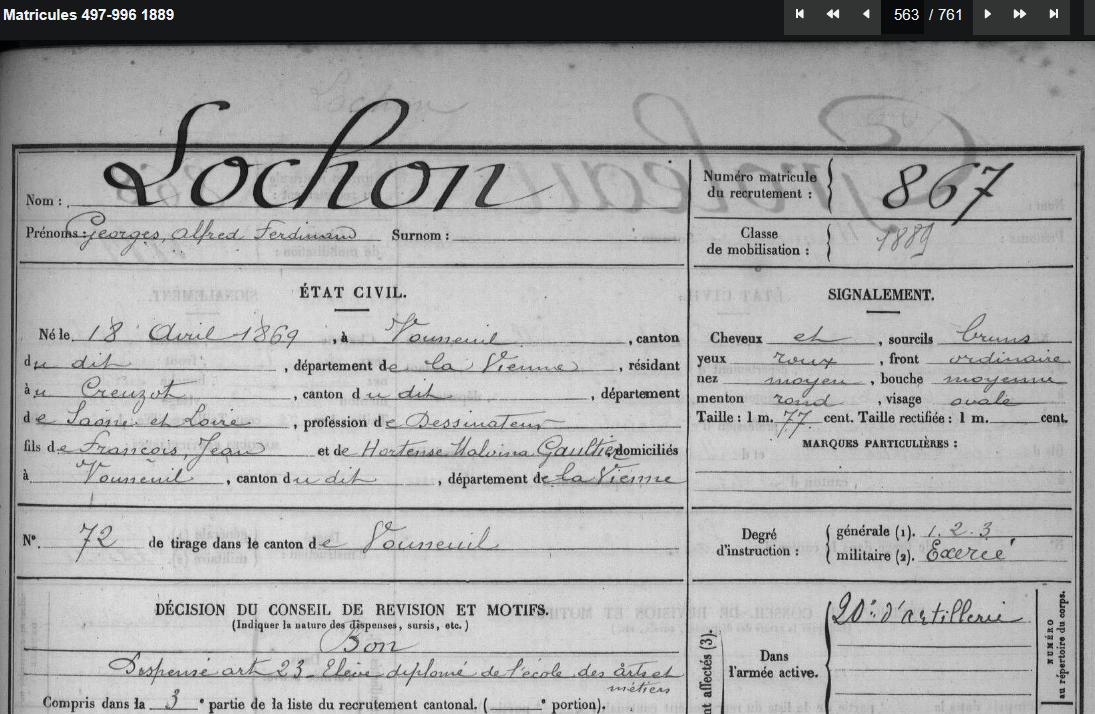 Matricules 497-996 1889
563 / 761
Lochon
Nom :
Prénoms : Georges, Alfred Ferdinand Surnom :
Numéro matricule
du recrutement :
867
Classe
de mobilisation :
1889
ÉTAT CIVIL.
Né le 18 Avril 1869, à Vouneuil, canton
du dit, département de la Vienne, résidant
à u Creuzot, canton du dit, département
de Saône et Loire, profession de Dessinateur
fils de François, Jean et de Hortense Malvina Gaultier, domiciliés
à Vouneuil, canton du dit, département de la Vienne
SIGNALEMENT.
Cheveux et, sourcils bruns
yeux roux, front ordinaire
nez moyen, bouche moyenne
menton rond, visage ovale
Taille : 1 m. 77 cent. Taille rectifiée : 1 m. cent.
MARQUES PARTICULIÈRES :
N° 72 de tirage dans le canton de Vouneuil
Degré
d'instruction :
générale (1). 1. 2. 3
militaire (2). Exercé
DÉCISION DU CONSEIL DE REVISION ET MOTIFS.
(Indiquer la nature des dispenses, sursis, etc.)
Bon
Dispensé art 23 - Elève diplomé de l'école des arts et
métiers
Compris dans la 3e partie de la liste du recrutement cantonal. ( e portion).
nt affectés (3).
Dans
l'armée active.
20e d'artillerie
NUMÉRO
au répertoire du corps.